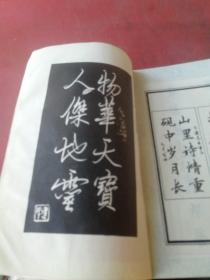 物華天寶
人傑地靈
山里诗情重
砚中岁月长